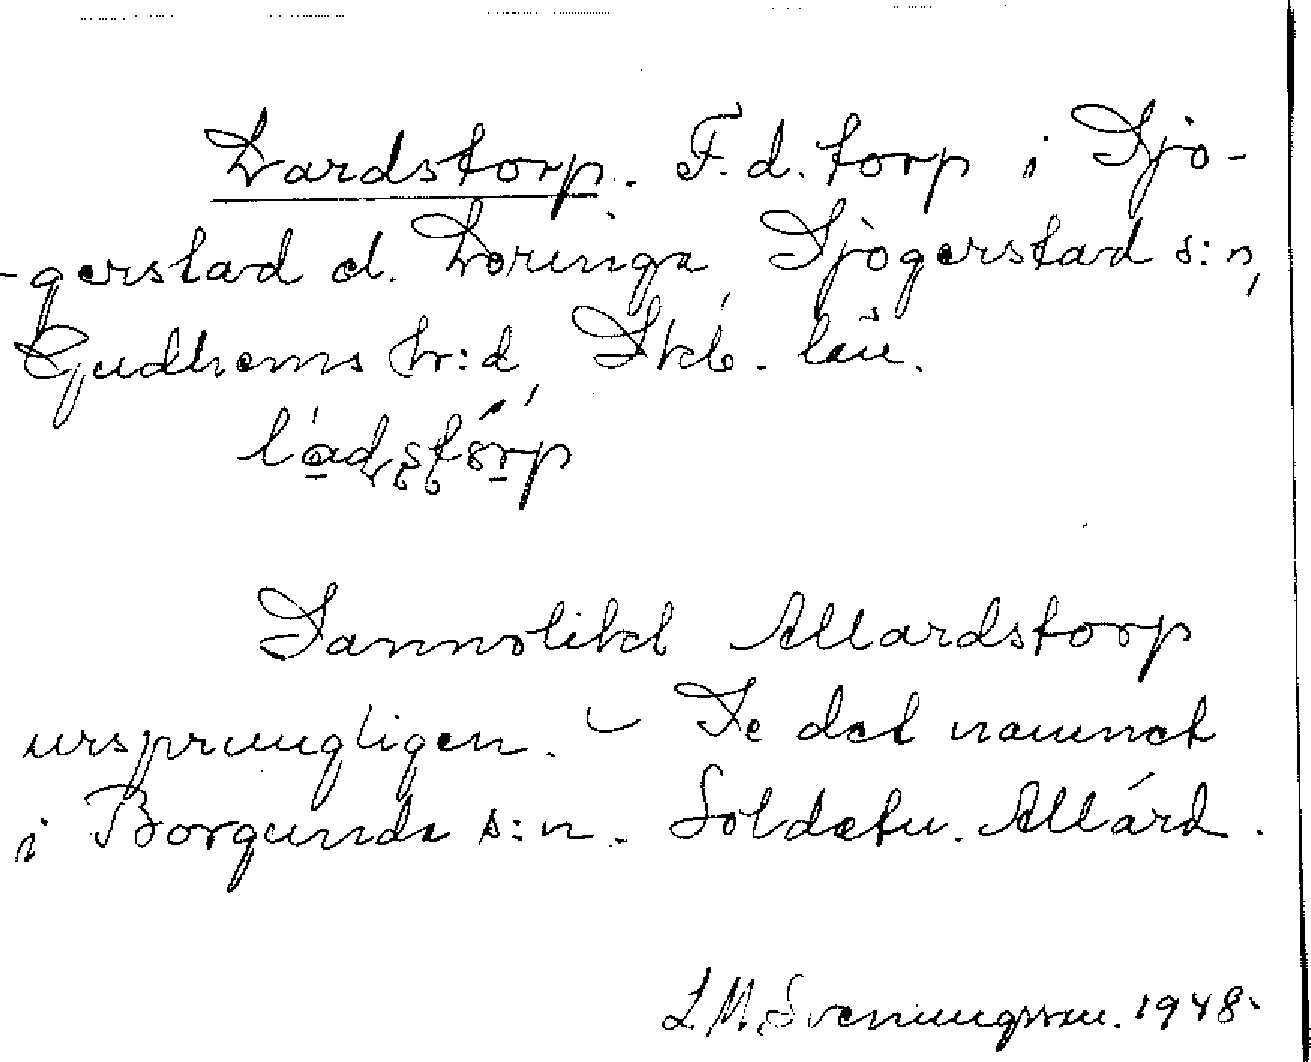 Lardstorp. F.d. torp i Sjö-
-gerstad el. Loringa Sjögerstad s:n,
Gudhems hr:d, Skb. län.
Sannolikt Allardstorp
ursprungligen. – Se det namnet
i Borgunda s:n. Soldatn. Allárd.
Sveningsson. 1948.